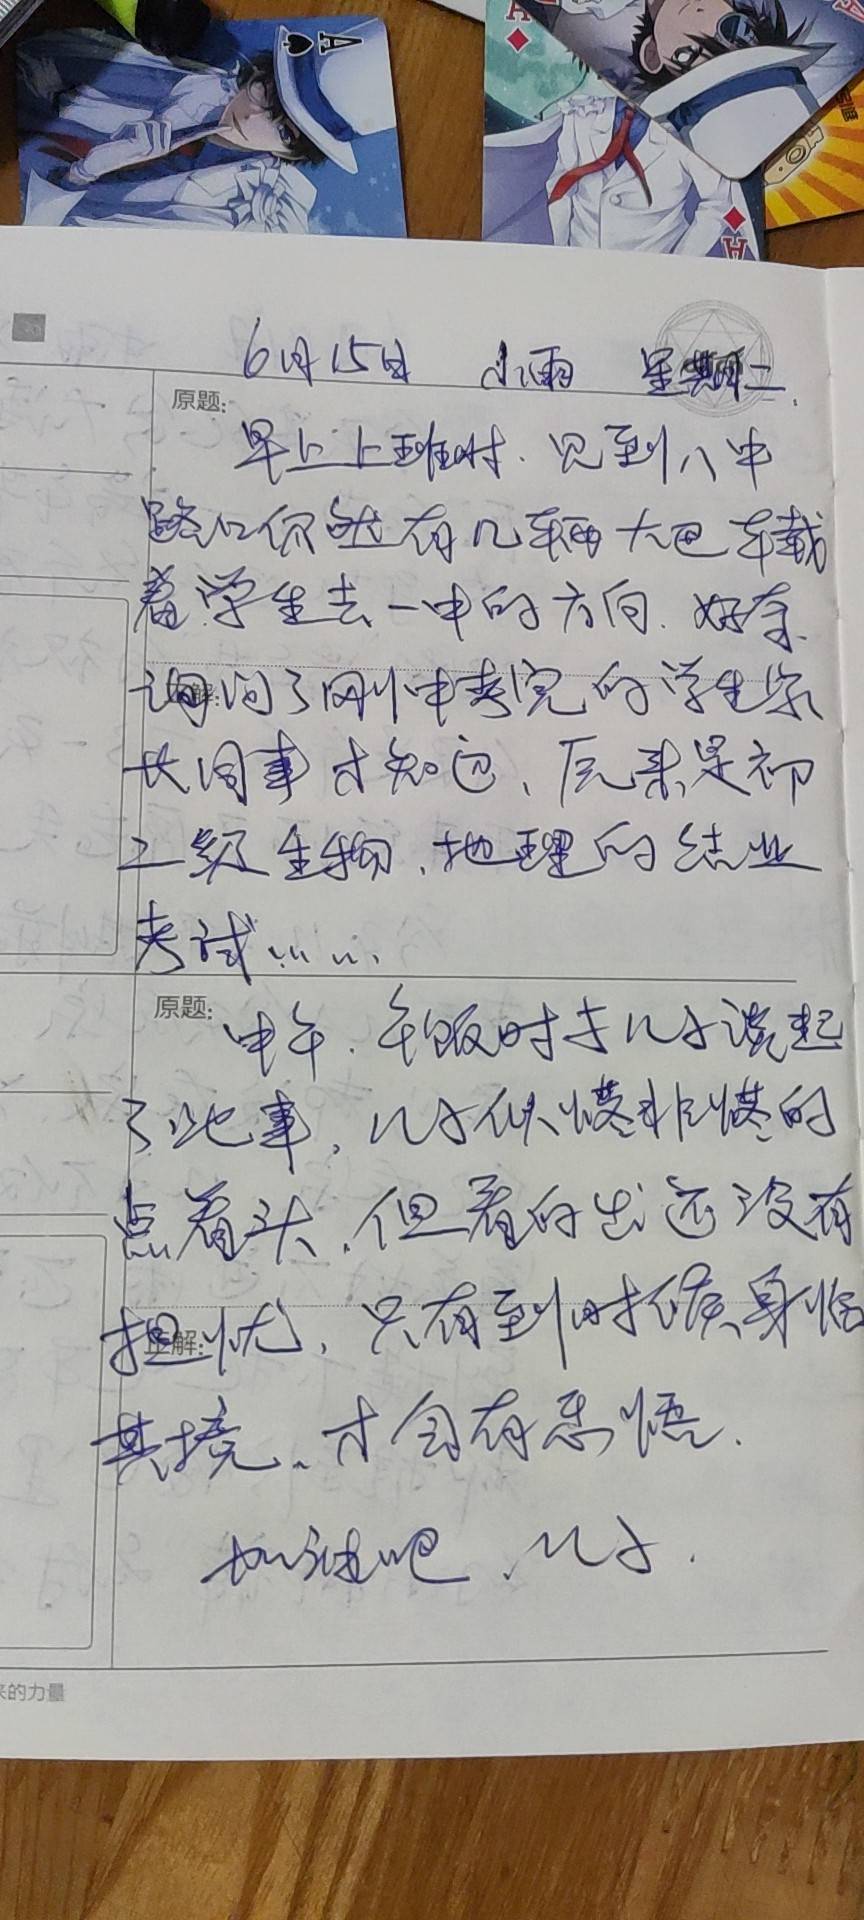 A
A
A
6月15日 小雨 星期二
原题:
早上上班时、见到八中
路口仍然有几辆大巴车载
着学生去一中的方向、好奇
询问了刚中考完的学生家
长同事才知道、原来是初
二级生物、地理的结业
考试……
原题:
中午、午饭时与儿子谈起
了此事，儿子似懂非懂的
点着头，但看的出还没有
担忧，只有到时候身临
正解:
其境、才会有感悟.
加油吧、儿子.
来的力量